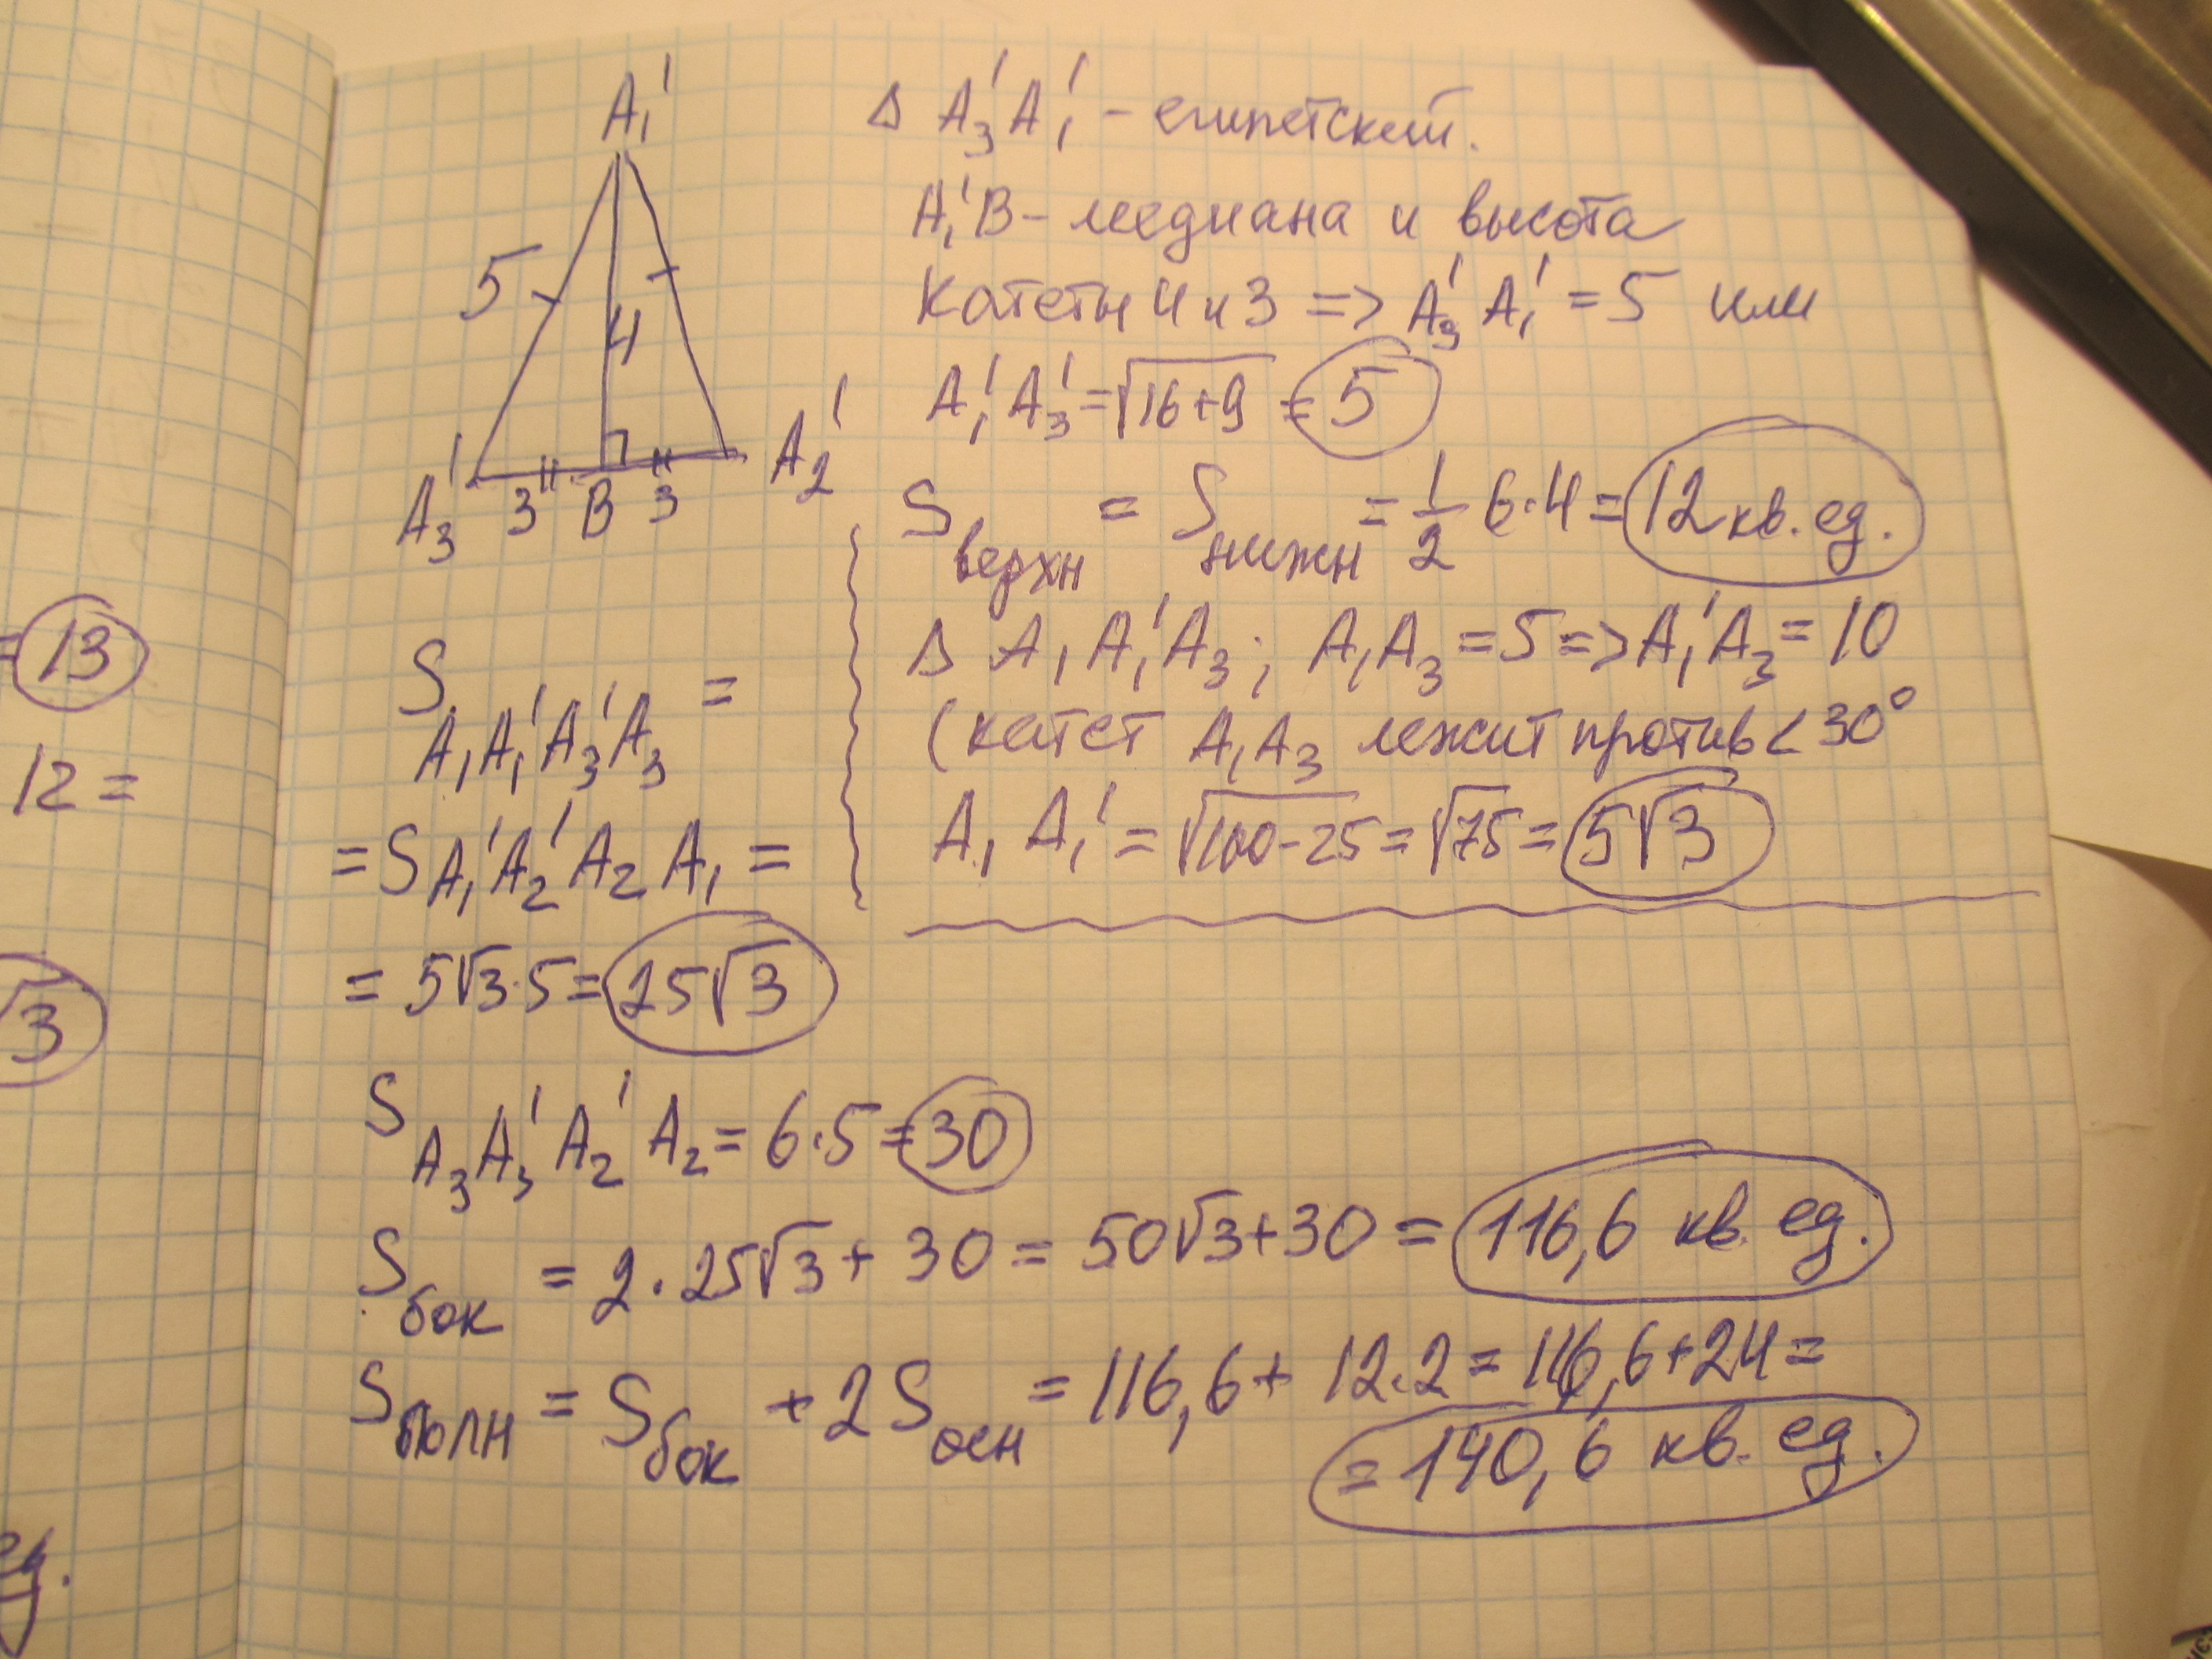 = 13
12 =
√3
A₁'
5
4
A₃' 3 B 3 A₂'
Δ A₃'A₁' - египетский.
A₁'B - медиана и высота
Катеты 4 и 3 => A₃'A₁' = 5 или
A₁'A₃' = √16+9 = 5
S верхн = S нижн = 1/2 6·4 = 12 кв. ед.
Δ A₁A₁'A₃; A₁A₃ = 5 => A₁'A₃ = 10
(катет A₁A₃ лежит против < 30°
A₁A₁' = √100-25 = √75 = 5√3
S A₁A₁'A₃'A₃ =
= S A₁'A₂'A₂A₁ =
= 5√3·5 = 25√3
S A₃A₃'A₂'A₂ = 6·5 = 30
S бок = 2·25√3 + 30 = 50√3+30 = 116,6 кв. ед.
S полн = S бок + 2S осн = 116,6 + 12·2 = 116,6+24 =
= 140,6 кв. ед.